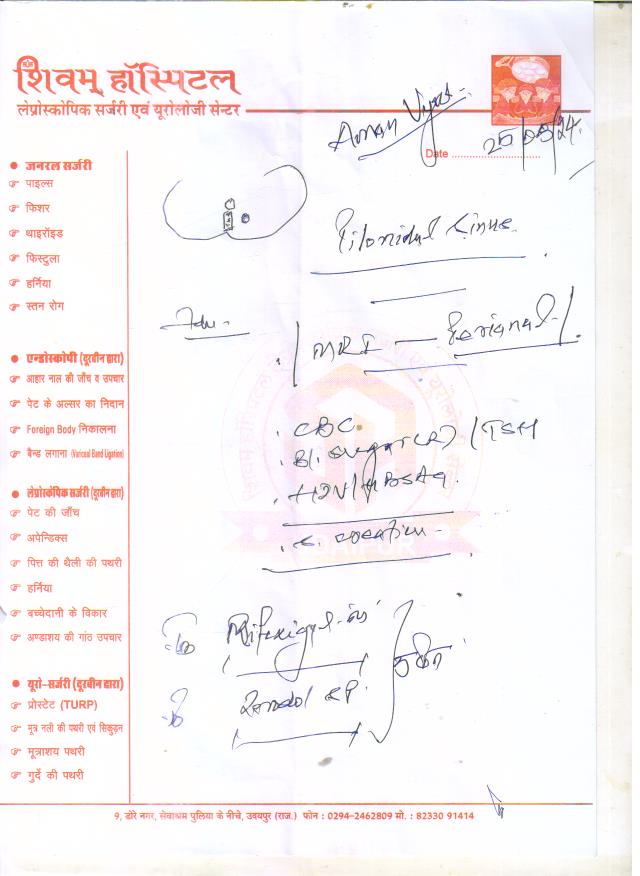 शिवम् हॉस्पिटल
लेप्रोस्कोपिक सर्जरी एवं यूरोलोजी सेन्टर
Aman Vyas
Date 25/05/24
जनरल सर्जरी
पाइल्स
फिशर
थाइरॉइड
फिस्टुला
हर्निया
स्तन रोग
एन्डोस्कोपी (दूरबीन द्वारा)
आहार नाल की जाँच व उपचार
पेट के अल्सर का निदान
Foreign Body निकालना
बैन्ड लगाना (Variceal Band Ligation)
लेप्रोस्कोपिक सर्जरी (दूरबीन द्वारा)
पेट की जाँच
अपेन्डिक्स
पित्त की थैली की पथरी
हर्निया
बच्चेदानी के विकार
अण्डाशय की गांठ उपचार
यूरो-सर्जरी (दूरबीन द्वारा)
प्रोस्टेट (TURP)
मूत्र नली की पथरी एवं सिकुड़न
मूत्राशय पथरी
गुर्दे की पथरी
Pilonidal Sinus
Adv -
MRI — Perianal
CBC
Bl. Sugar (R) / TSH
HIV / HBSAg
S. creatinine
9, डोरे नगर, सेवाश्रम पुलिया के नीचे, उदयपुर (राज.) फोन : 0294-2462809 मो. : 82330 91414